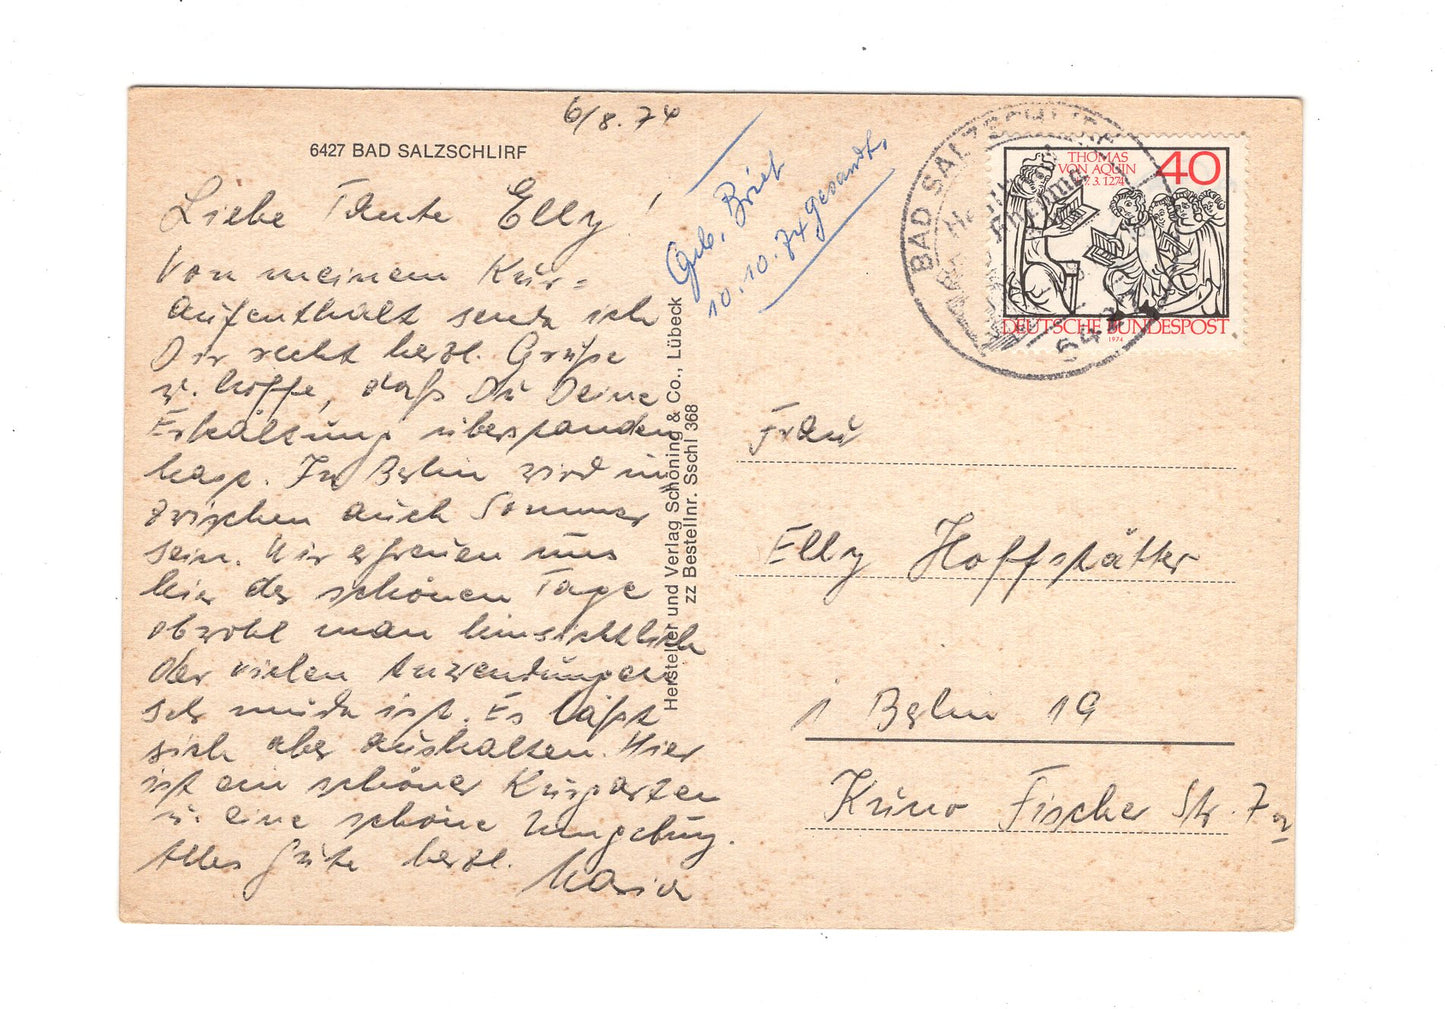 6/8.74
6427 BAD SALZSCHLIRF
Liebe Tante Elly!
Von meinem Kur=
aufenthalt sende ich
Dir recht herzl. Grüße
u. hoffe, daß Du Deine
Erkältung überstanden
hast. In Berlin wird in
zwischen auch Sommer
sein. Wir erfreuen uns
hier der schönen Tage
obwohl man hinsichtlich
der vielen Anwendungen
sehr müde ist. Es läßt
sich aber aushalten. Hier
ist ein schöner Kurgarten
u. eine schöne Umgebung.
Alles Gute herzl.
Maria
Geb. Brief
10.10.74 gesandt.
Hersteller und Verlag Schöning & Co., Lübeck
zz Bestellnr. Sschl 368
BAD SALZSCHLIRF
6427
THOMAS
VON AQUIN
7.3.1274
40
DEUTSCHE BUNDESPOST
1974
Frau
Elly Hoffstätter
1 Berlin 19
Kuno Fischer Str. 7a